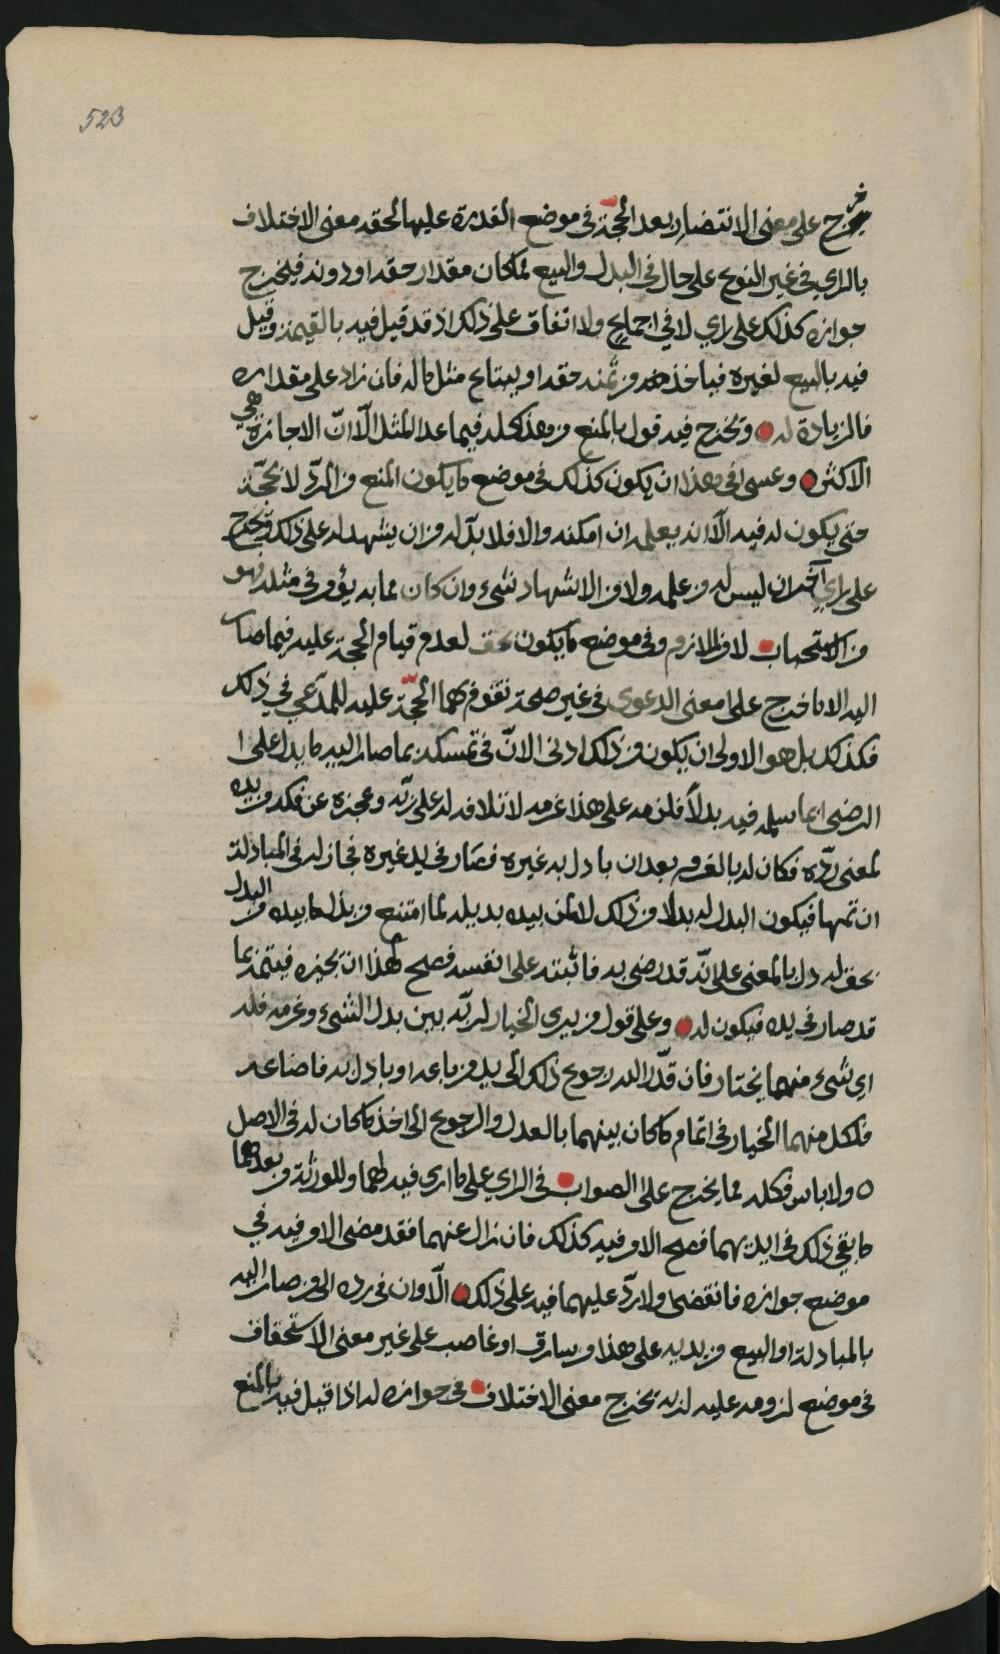 523
يخرج على معنى الانتصار بعد الحجّة في موضع القدرة عليها لحقه معنى الاختلاف
بالراي في غير النوع على حال في البدل والبيع لما كان مقدار حقه او دونه فيخرج
جوازه كذلك على راي لا في اجماع ولا اتفاق على ذلك اذ قد قيل فيه بالقيمة وقيل
فيه بالبيع لغيره فياخذ من ثمنه حقه او يبتاع مثل ماله فان زاد على مقداره
فالزيادة له وتخرج فيه قول بالمنع من هذا كله فيما عدا المثل الّا انّ الاجازة هي
الاكثر وعسى في هذا ان يكون كذلك في موضع ما يكون المنع من الردّ لا بحجّة
حتى يكون له فيه الّا انه يعلمه ان امكنه والا فلا بدّ له من ان يشهد له على ذلك ويخرج
على راي آخر ان ليس له من علمه ولا من الاشهاد شيء وان كان مما به يؤمر في مثله فهو
من الاستحباب لا من اللازم وفي موضع ما يكون بحق لعدم قيام الحجة عليه فيما صار
اليه الا ما خرج على معنى الدعوى في غير صحة تقوم بها الحجّة عليه للمدّعي في ذلك
فكذلك بل هو الاولى ان يكون من ذلك ادنى الانّ في تمسكه بما صار اليه ما يدل على
الرضى بما سلمه فيه بدلاً فلزمه على هذا غرمه لاتلافه له على ربّه وعجزه عن فكه من يده
لمعنى ردّه فكان له بالغرم بعد ان بادل به غيره فصار في يد غيره فجاز له في المبادلة
ان تمها فيكون البدل له بدلا من ذلك لانّ من بيده بديله لما امتنع من بذل ما بيده من البدل
بحق له دل بالمعنى على انّه قد رضي به فاثبته على نفسه فصح لهذا ان يجيزه فيتمه بما
قد صار في يده فيكون له وعلى قول من يرى الخيار لربّه بين بدل الشيء وغرمه فله
اي شيء منهما يختار فان قدّر الله رجوع ذلك الى يد من باعه او بادل به فاضاعه
فلكل منهما الخيار في اتمام ما كان بينهما بالعدل والرجوع الى اخذ ما كان له في الاصل
ولا باس فكله مما يخرج على الصواب في الراي على ما ارى فيه لهما وللورثة من بعدهما
ما بقي ذلك في ايديهما فصح الامر فيه كذلك فان زال عنهما فقد مضى الامر فيه في
موضع جوازه فانقضى ولا ردّ عليهما فيه على ذلك الّا وان في رده الى من صار اليه
بالمبادلة او البيع من يديه على هذا من سارق او غاصب على غير معنى الاستحقاق
في موضع لزومه عليه لربه يخرج معنى الاختلاف في جوازه له اذا قيل فيه بالمنع